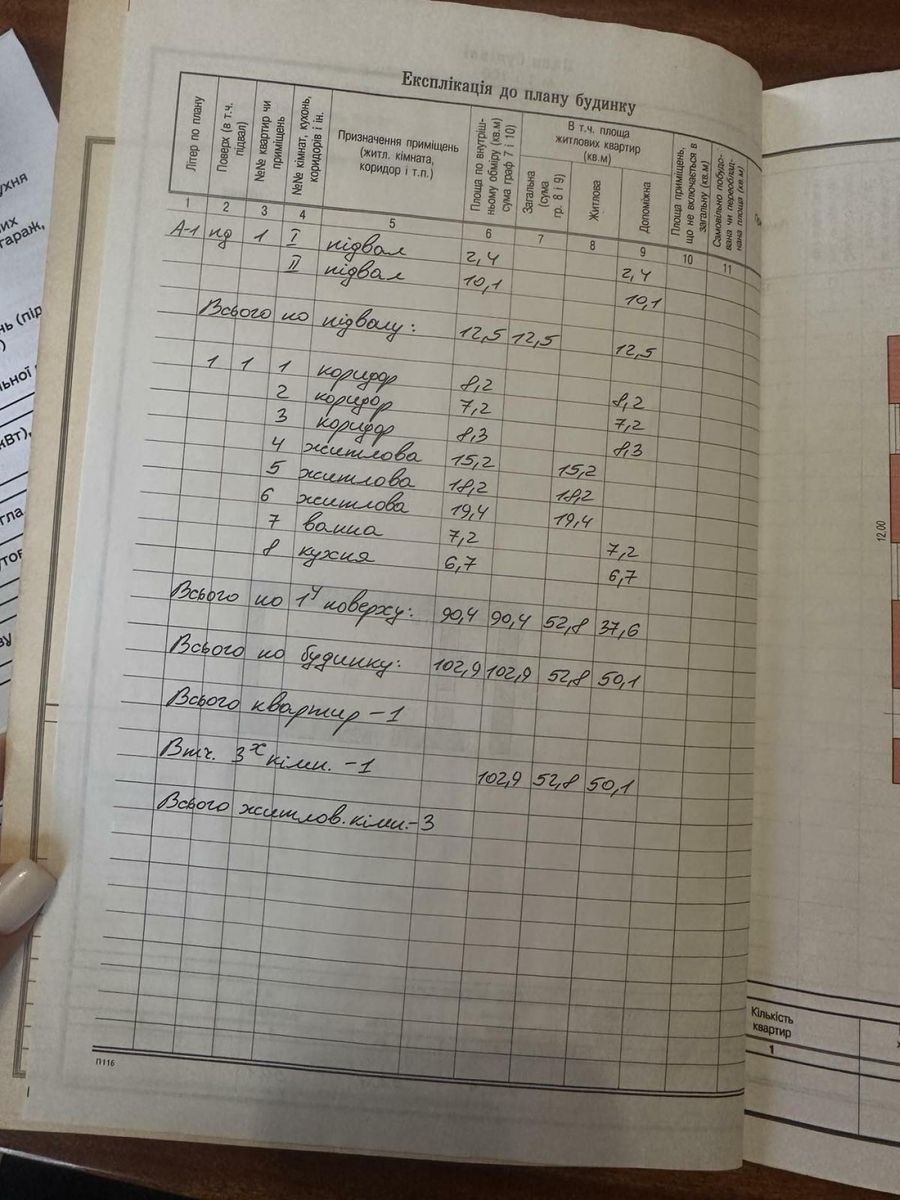 Експлікація до плану будинку
Літер по плану
Поверх (в т.ч. підвал)
№№ квартир чи приміщень
№№ кімнат, кухонь, коридорів і ін.
Призначення приміщень (житл. кімната, коридор і т.п.)
Площа по внутрішньому обміру (кв.м) сума граф 7 і 10)
В т.ч. площа житлових квартир (кв.м)
Загальна (сума гр. 8 і 9)
Житлова
Допоміжна
Площа приміщень, що не включається в загальну (кв.м)
Самовільно побудована чи переобладнана площа (кв.м)
1 2 3 4 5 6 7 8 9 10 11
А-1 пд 1 I підвал 2,4 2,4
II підвал 10,1 10,1
Всього по підвалу: 12,5 12,5 12,5
1 1 1 коридор 8,2 8,2
2 коридор 7,2 7,2
3 коридор 8,3 8,3
4 житлова 15,2 15,2
5 житлова 18,2 18,2
6 житлова 19,4 19,4
7 ванна 7,2 7,2
8 кухня 6,7 6,7
Всього по 1у поверху: 90,4 90,4 52,8 37,6
Всього по будинку: 102,9 102,9 52,8 50,1
Всього квартир -1
В т.ч. 3х кімн. -1 102,9 52,8 50,1
Всього житлов. кімн.-3
П116
12.00
Кількість квартир
1
ухня
гараж,
кВт),